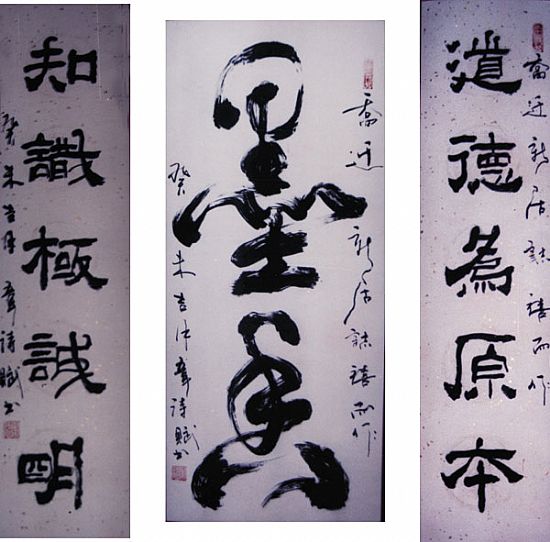 道德為原本
喬迁新居誌禧而作
墨
喬迁新居誌禧而作
癸未吉韋詩賦书
知識極誠明
癸未吉韋詩賦书